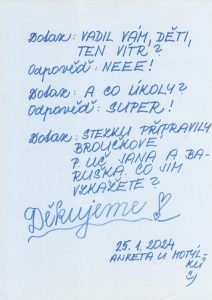 Dotaz: VADIL VÁM, DĚTI,
TEN VÍTR?
Odpověď: NEEE!
Dotaz: A CO ÚKOLY?
Odpověď: SUPER!
Dotaz: STEZKU PŘIPRAVILY
BROUČKOVÉ
P. UČ JANA A BA-
RUŠKA. CO JIM
VZKÁŽETE?
Děkujeme!
25. 1. 2024
ANKETA U MOTÝL-
KŮ